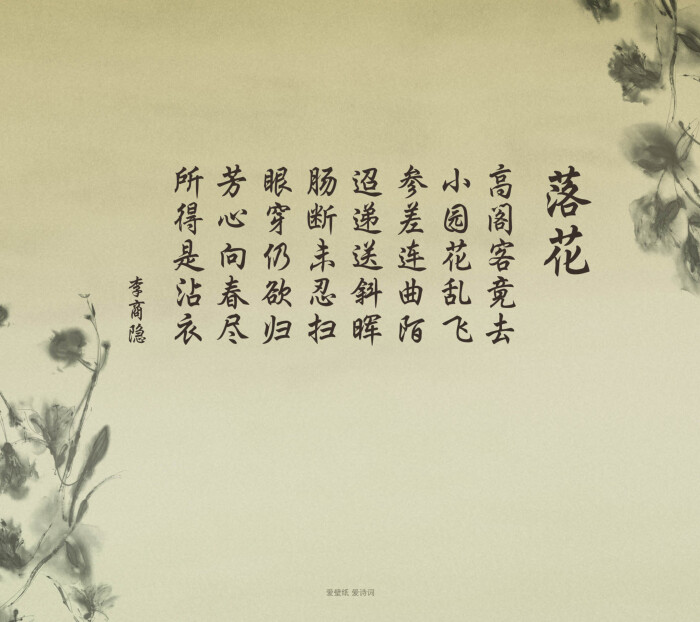 落花
高阁客竟去
小园花乱飞
参差连曲陌
迢递送斜晖
肠断未忍扫
眼穿仍欲归
芳心向春尽
所得是沾衣
李商隐
爱壁纸 爱诗词